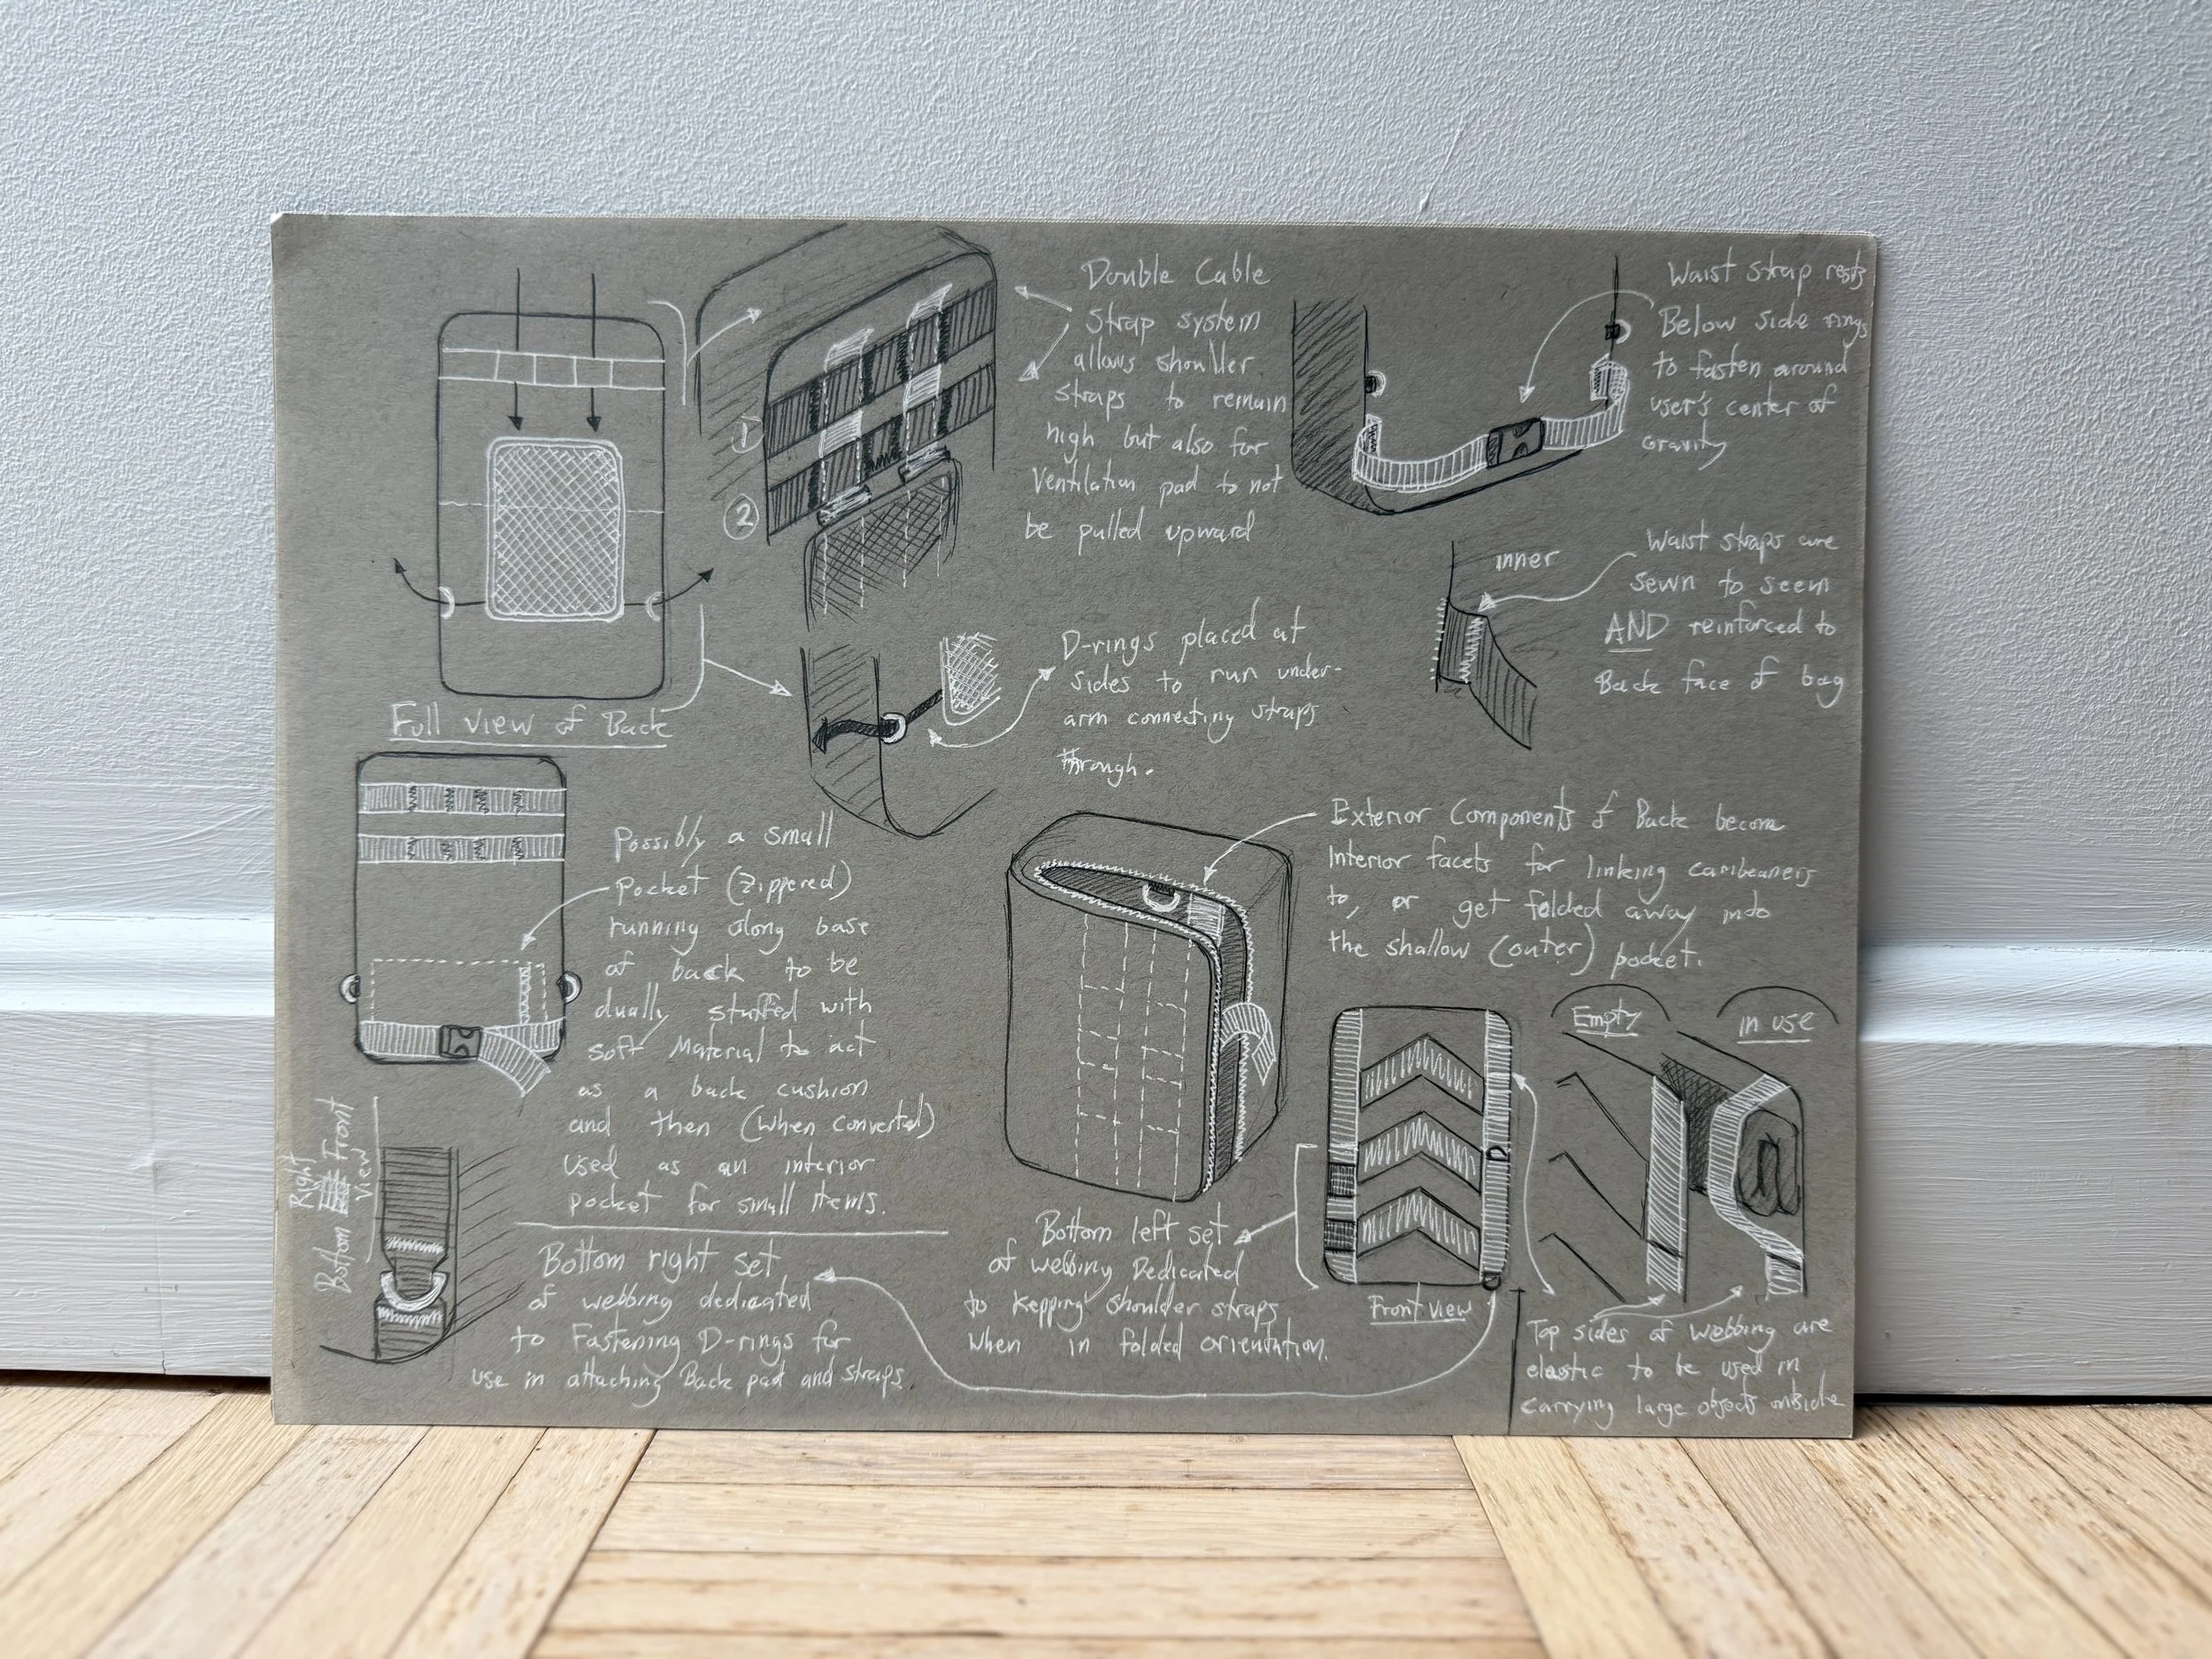 Double Cable
Strap system
allows shoulder
straps to remain
high but also for
ventilation pad to not
be pulled upward
1
2
Waist strap rests
Below side rings
to fasten around
user's center of
gravity
inner
Waist straps are
sewn to seem
AND reinforced to
Back face of bag
D-rings placed at
sides to run under-
arm connecting straps
through.
Full view of Back
Possibly a small
pocket (zippered)
running along base
of back to be
dually stuffed with
soft Material to act
as a back cushion
and then (when converted)
used as an interior
pocket for small items.
Exterior Components of Back become
Interior facets for linking caribeaners
to, or get folded away into
the shallow (outer) pocket.
Empty
in use
Right
Bottom Front
View
Bottom right set
of webbing dedicated
to Fastening D-rings for
use in attaching Back pad and straps.
Bottom left set
of webbing Dedicated
to kepping shoulder straps
when in folded orientation.
Front view
Top sides of webbing are
elastic to be used in
carrying large objects outside